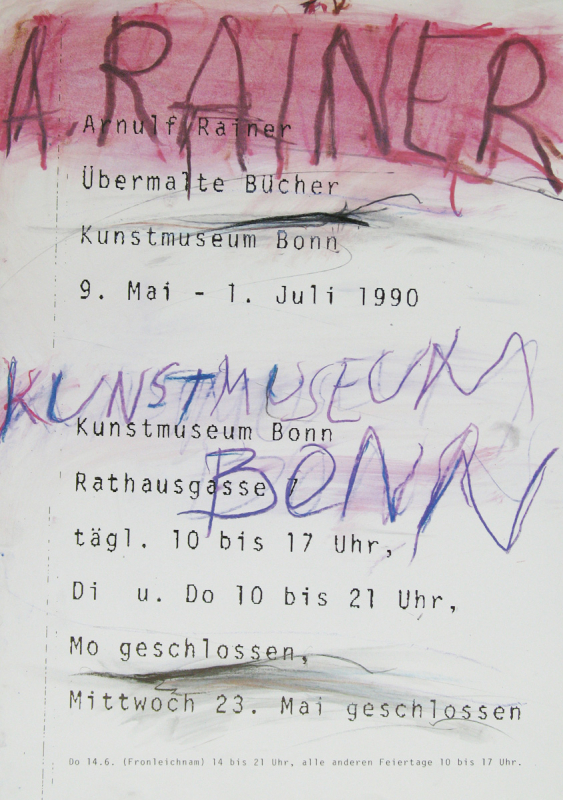 A. RAINER
Arnulf Rainer
Übermalte Bücher
Kunstmuseum Bonn
9. Mai - 1. Juli 1990
KUNSTMUSEUM
Kunstmuseum Bonn
BONN
Rathausgasse 7
tägl. 10 bis 17 Uhr,
Di u. Do 10 bis 21 Uhr,
Mo geschlossen,
Mittwoch 23. Mai geschlossen
Do 14.6. (Fronleichnam) 14 bis 21 Uhr, alle anderen Feiertage 10 bis 17 Uhr.